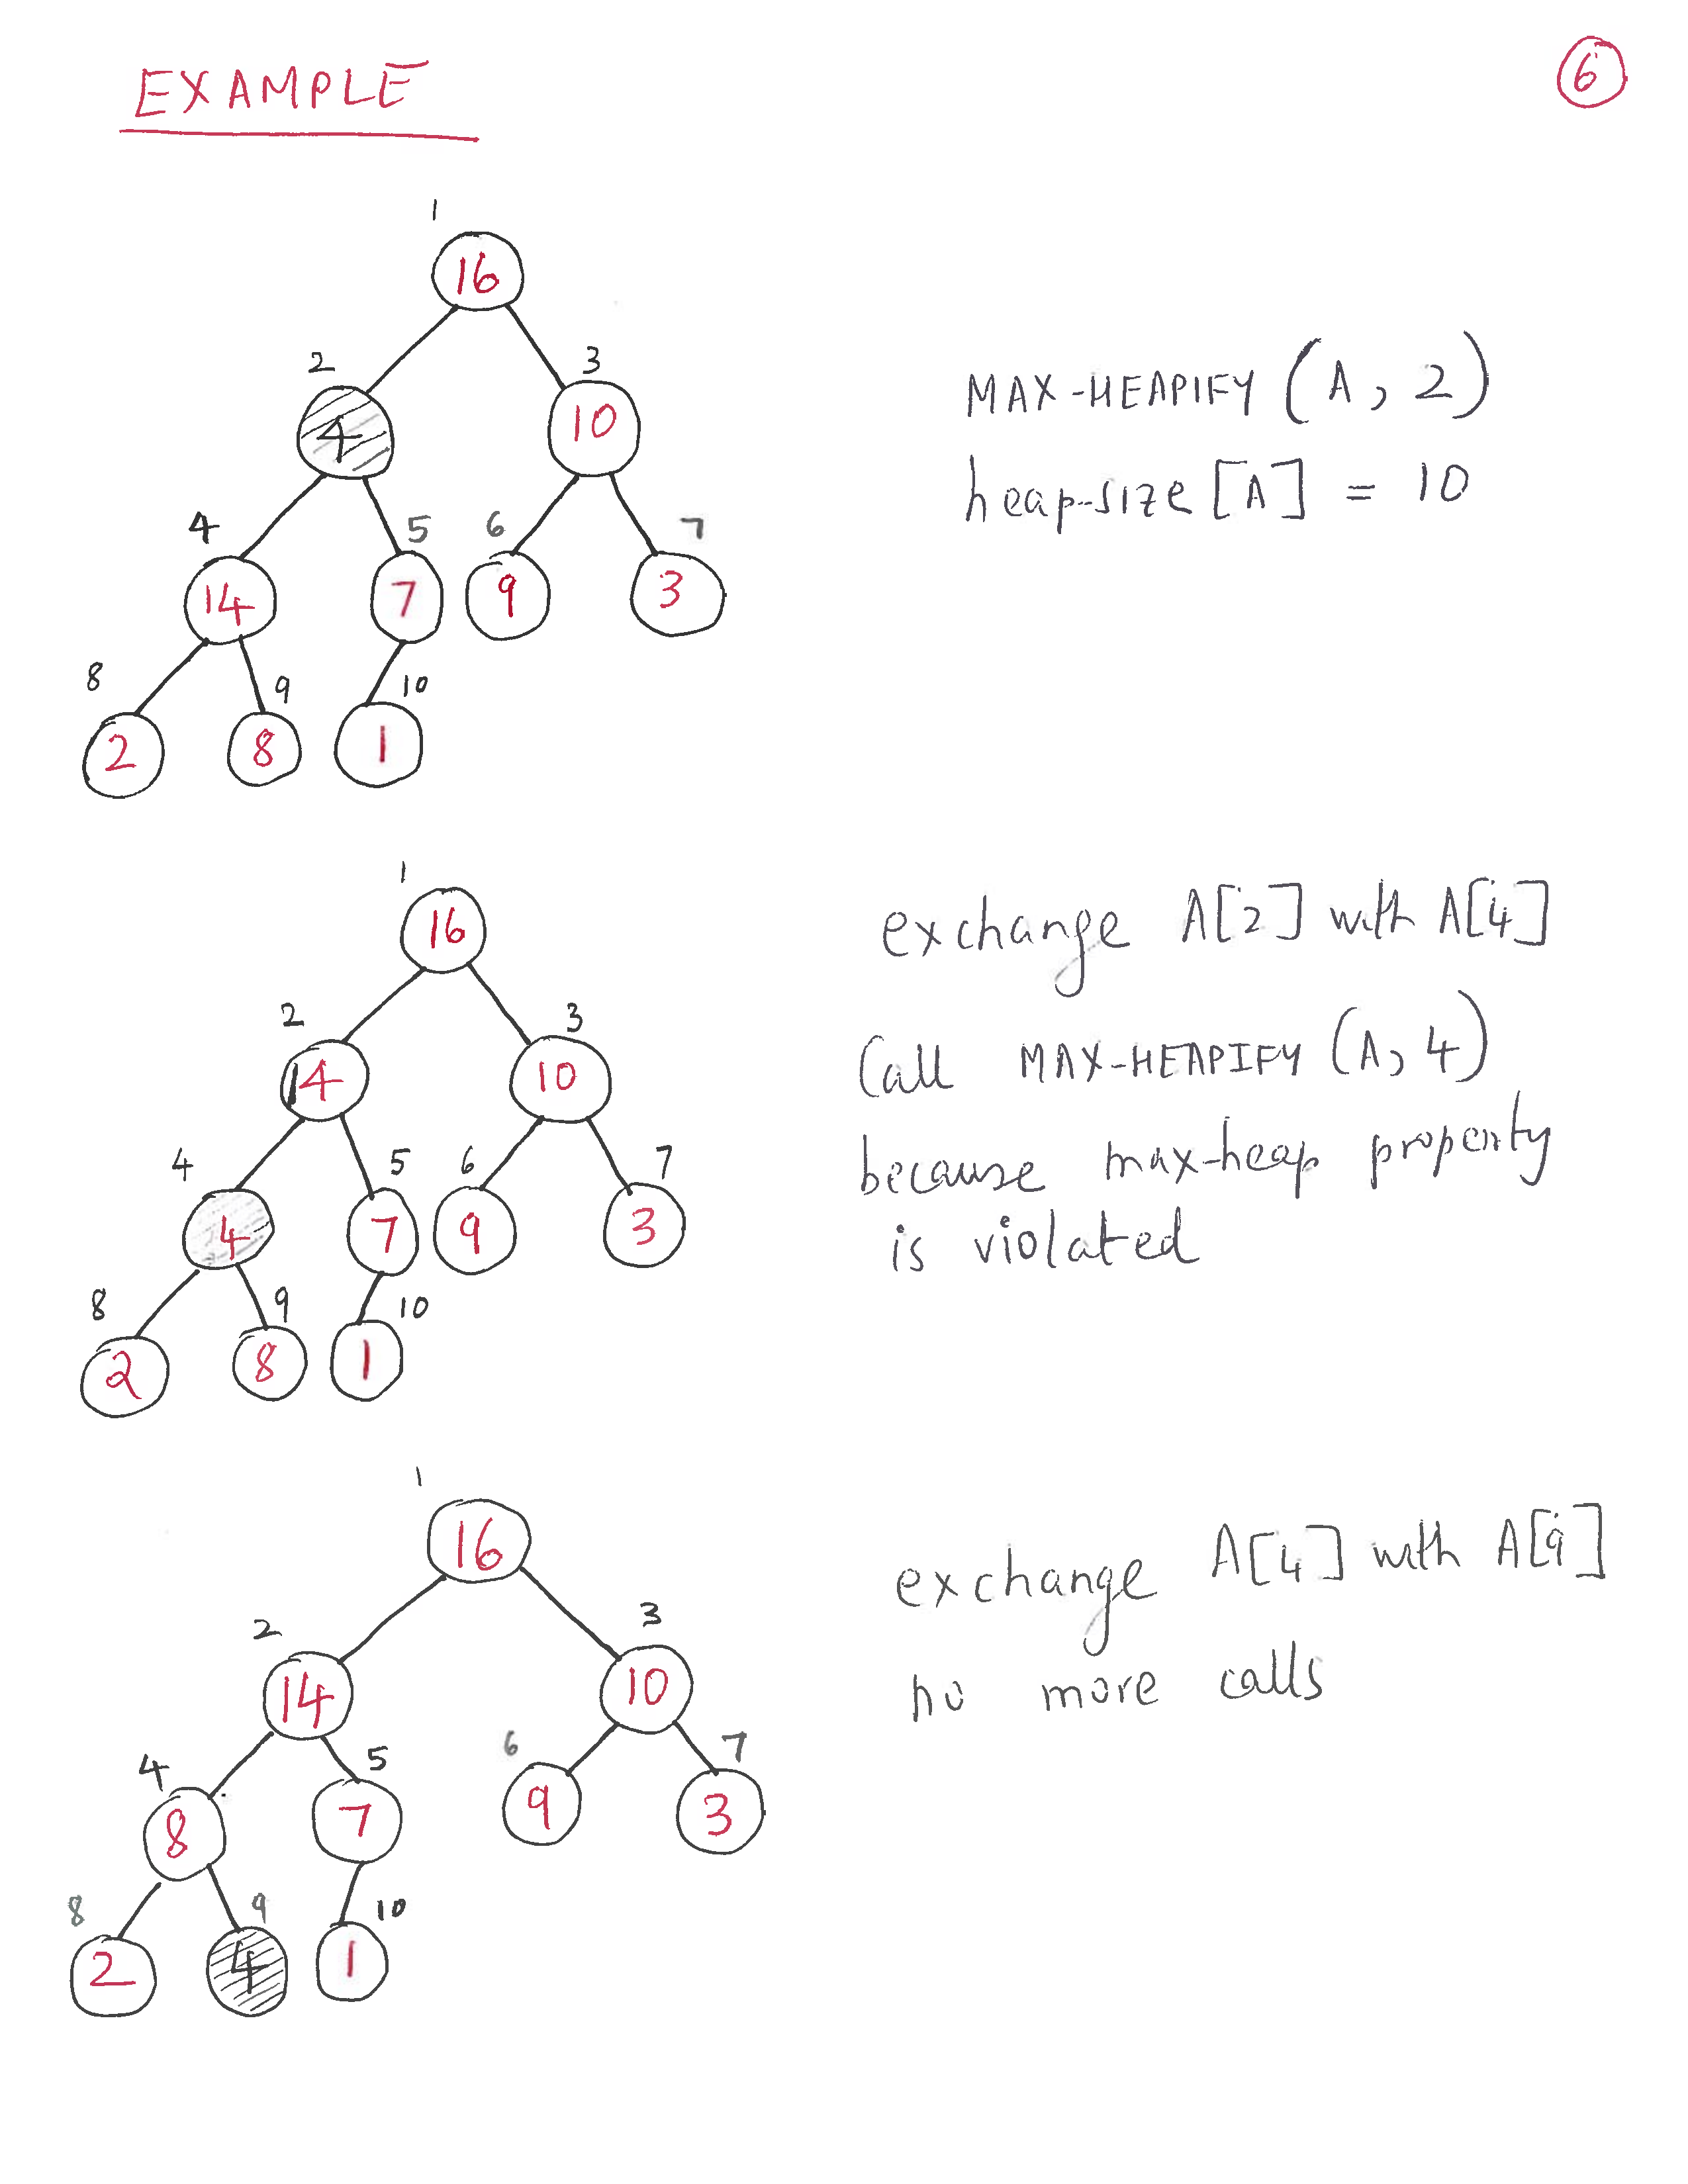 EXAMPLE
6
1
16
2 3
4 10
4 5 6 7
14 7 9 3
8 9 10
2 8 1
MAX-HEAPIFY (A, 2)
heap-size [A] = 10
1
16
2 3
14 10
4 5 6 7
4 7 9 3
8 9 10
2 8 1
exchange A[2] with A[4]
Call MAX-HEAPIFY (A, 4)
because max-heap property
is violated
1
16
2 3
14 10
4 5 6 7
8 7 9 3
8 9 10
2 4 1
exchange A[4] with A[9]
no more calls